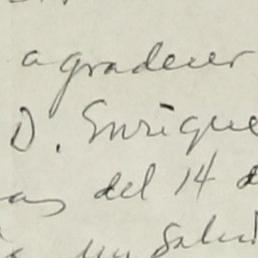 agradecer
D. Enrique
del 14 d
un Salud